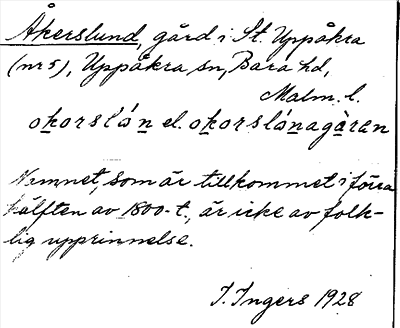 Åkerslund, gård i St. Uppåkra
(nr 5), Uppåkra sn, Bara hd,
Malm. l.
okorslón el. okorslónagàran
Namnet, som är tillkommet i förra
hälften av 1800-t., är icke av folk-
lig upprinnelse.
I. Ingers 1928